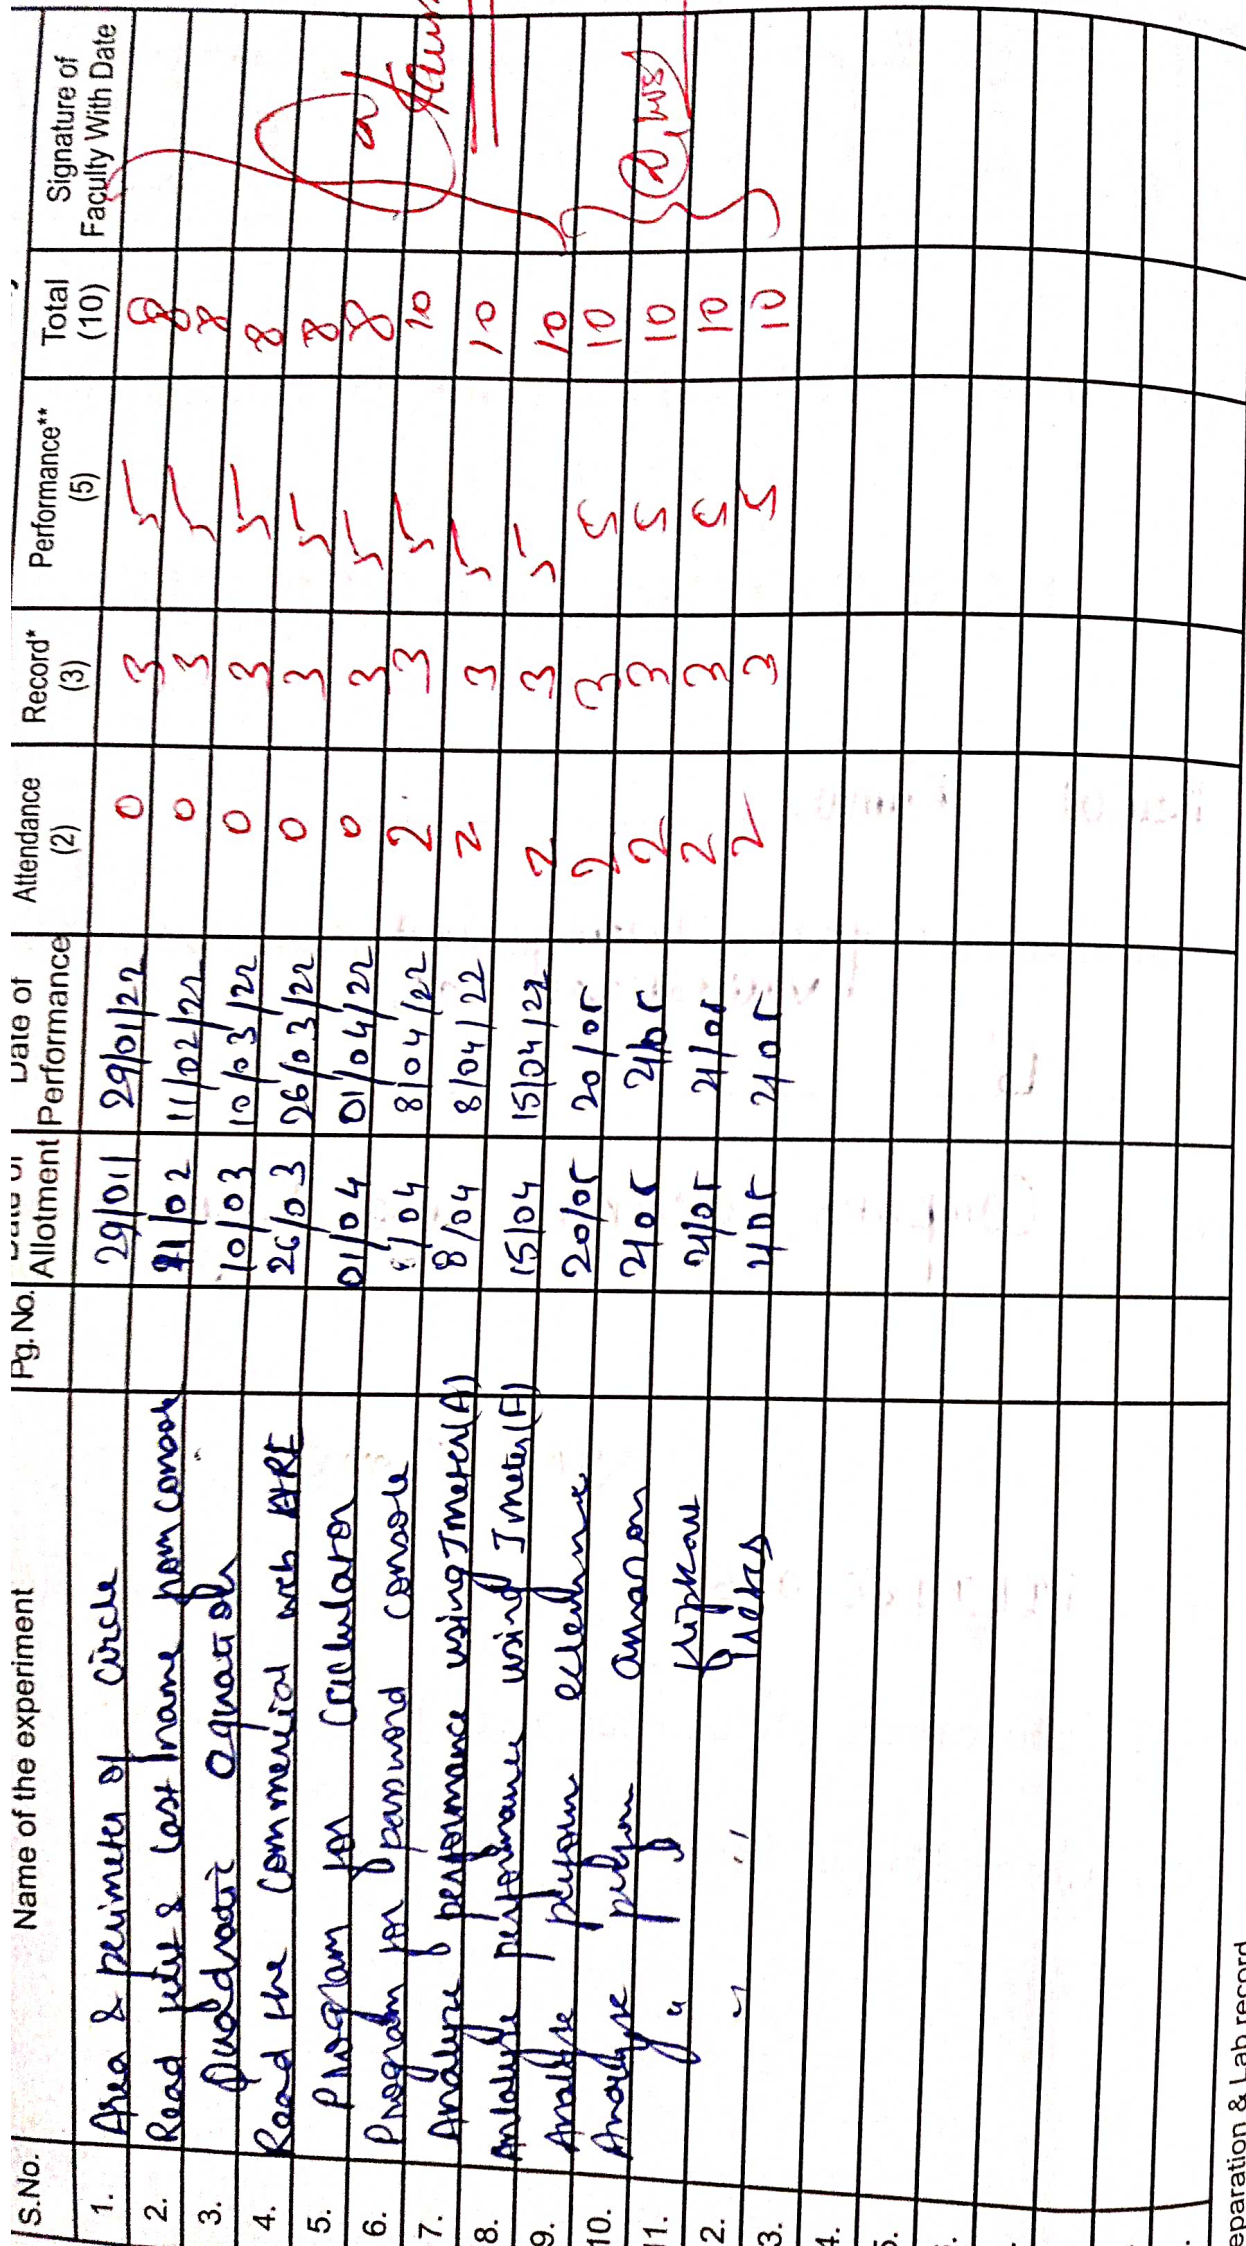 S.No. Name of the experiment Pg. No. Date of Allotment Date of Performance Attendance (2) Record* (3) Performance** (5) Total (10) Signature of Faculty With Date
1. Area & perimeter of circle 29/011 29/01/22 0 3 5 8
2. Read first & last name from console 11/02 11/02/22 0 3 5 8
3. Quadratic equation 10/03 10/03/22 0 3 5 8
4. Read the commercial web 26/03 26/03/22 0 3 5 8
5. Program for calculator 01/04 01/04/22 0 3 5 8
6. Program for password console 8/04 8/04/22 2 3 5 10
7. Analyse performance using Jmeter(A) 8/04 8/04/22 2 3 5 10
8. Anlalyse performance using Jmeter(F) 15/04 15/04/22 2 3 5 10
9. Analyse 20/05 20/05 2 3 5 10
10. Analyse amazon 21/05 21/05 2 3 5 10
11. " " flipkart 21/05 21/05 2 3 5 10
2. " " 21/05 21/05 2 3 5 10
3.
4.
5.
eparation & Lab record